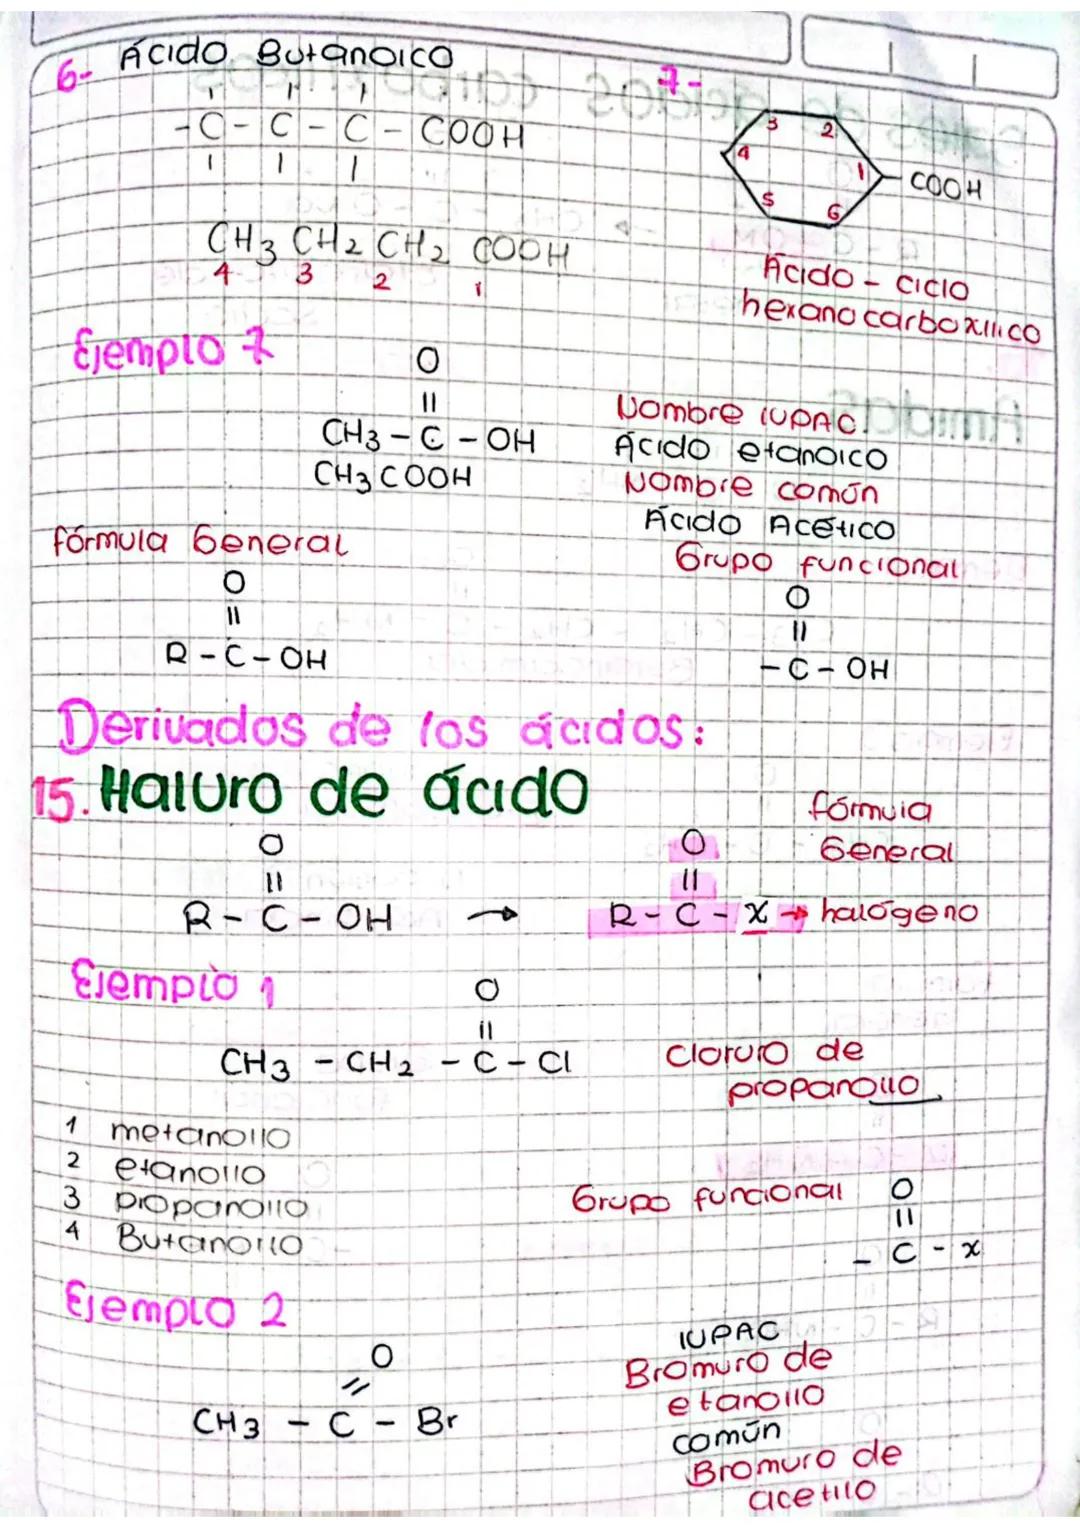 6- Ácido Butanoico
-C-C-C-COOH
CH3 CH2 CH2 COOH
4 3 2 1
7-
3 2
4 1 -COOH
5 6
Ácido-ciclo
hexanocarboxílico
Ejemplo 7
O
||
CH3-C-OH
CH3COOH
Nombre IUPAC:
Ácido etanoico
Nombre común
Ácido Acético
fórmula General
O
||
R-C-OH
Grupo funcional
O
||
-C-OH
Derivados de los ácidos:
15. Haluro de ácido
O
||
R-C-OH →
fórmula
General
O
||
R-C-X → halógeno
Ejemplo 1
O
||
CH3-CH2-C-Cl
Cloruro de
propanoilo
1 metanoilo
2 etanoilo
3 propanoilo
4 Butanoilo
Grupo funcional
O
||
-C-x
Ejemplo 2
O
||
CH3-C-Br
IUPAC
Bromuro de
etanoilo
común
Bromuro de
acetilo